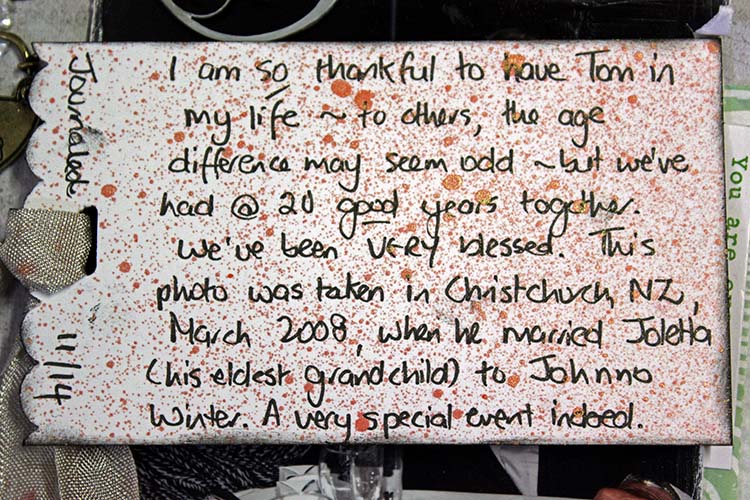 Journaled
11/14
I am so thankful to have Tom in
my life ~ to others, the age
difference may seem odd ~ but we've
had @ 20 good years together.
We've been VERY blessed. This
photo was taken in Christchurch, NZ,
March 2008, when he married Joletta
(his eldest grandchild) to Johnno
Winter. A very special event indeed.
You are